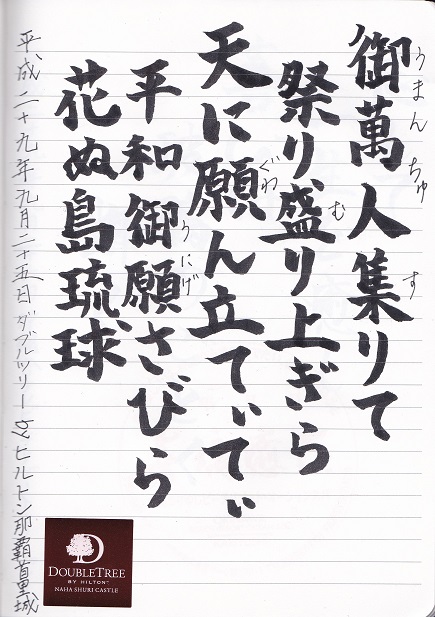 うまんちゅ す
御萬人集りて
む
祭り盛り上ぎら
ぐわ
天に願ん立てぃてぃ
うにげ
平和御願さびら
花ぬ島琉球
平成二十九年九月二十五日 ダブルツリー by ヒルトン那覇首里城
D
DOUBLETREE
BY HILTON™
NAHA SHURI CASTLE